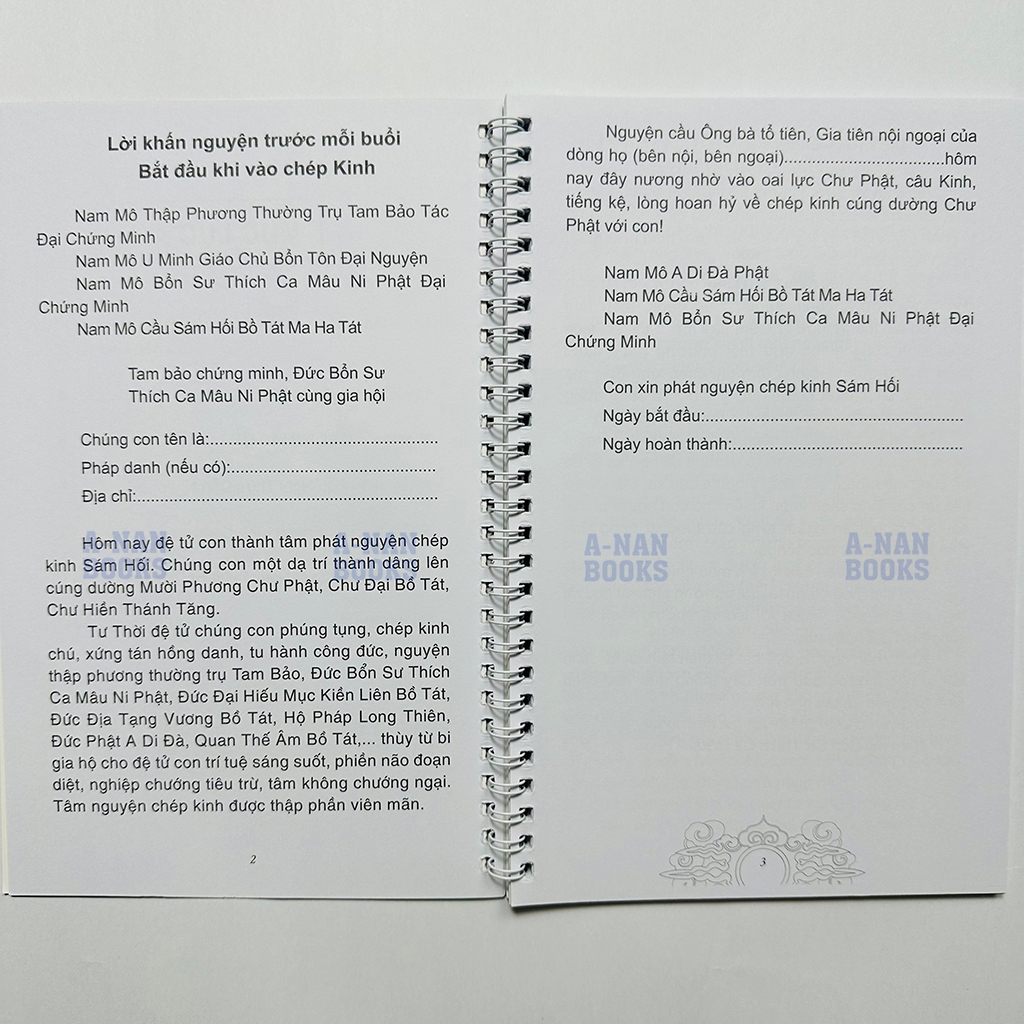 Lời khấn nguyện trước mỗi buổi
Bắt đầu khi vào chép Kinh
Nam Mô Thập Phương Thường Trụ Tam Bảo Tác
Đại Chứng Minh
Nam Mô U Minh Giáo Chủ Bổn Tôn Đại Nguyện
Nam Mô Bổn Sư Thích Ca Mâu Ni Phật Đại
Chứng Minh
Nam Mô Cầu Sám Hối Bồ Tát Ma Ha Tát
Tam bảo chứng minh, Đức Bổn Sư
Thích Ca Mâu Ni Phật cùng gia hội
Chúng con tên là:............................................
Pháp danh (nếu có):.......................................
Địa chỉ:..........................................................
Hôm nay đệ tử con thành tâm phát nguyện chép
kinh Sám Hối. Chúng con một dạ trí thành dâng lên
cúng dường Mười Phương Chư Phật, Chư Đại Bồ Tát,
Chư Hiền Thánh Tăng.
Tư Thời đệ tử chúng con phúng tụng, chép kinh
chú, xứng tán hồng danh, tu hành công đức, nguyện
thập phương thường trụ Tam Bảo, Đức Bổn Sư Thích
Ca Mâu Ni Phật, Đức Đại Hiếu Mục Kiền Liên Bồ Tát,
Đức Địa Tạng Vương Bồ Tát, Hộ Pháp Long Thiên,
Đức Phật A Di Đà, Quan Thế Âm Bồ Tát,... thùy từ bi
gia hộ cho đệ tử con trí tuệ sáng suốt, phiền não đoạn
diệt, nghiệp chướng tiêu trừ, tâm không chướng ngại.
Tâm nguyện chép kinh được thập phần viên mãn.
2
A-NAN
BOOKS
A-NAN
BOOKS
Nguyện cầu Ông bà tổ tiên, Gia tiên nội ngoại của
dòng họ (bên nội, bên ngoại)................................hôm
nay đây nương nhờ vào oai lực Chư Phật, câu Kinh,
tiếng kệ, lòng hoan hỷ về chép kinh cúng dường Chư
Phật với con!
Nam Mô A Di Đà Phật
Nam Mô Cầu Sám Hối Bồ Tát Ma Ha Tát
Nam Mô Bổn Sư Thích Ca Mâu Ni Phật Đại
Chứng Minh
Con xin phát nguyện chép kinh Sám Hối
Ngày bắt đầu:..................................................
Ngày hoàn thành:............................................
A-NAN
BOOKS
A-NAN
BOOKS
3